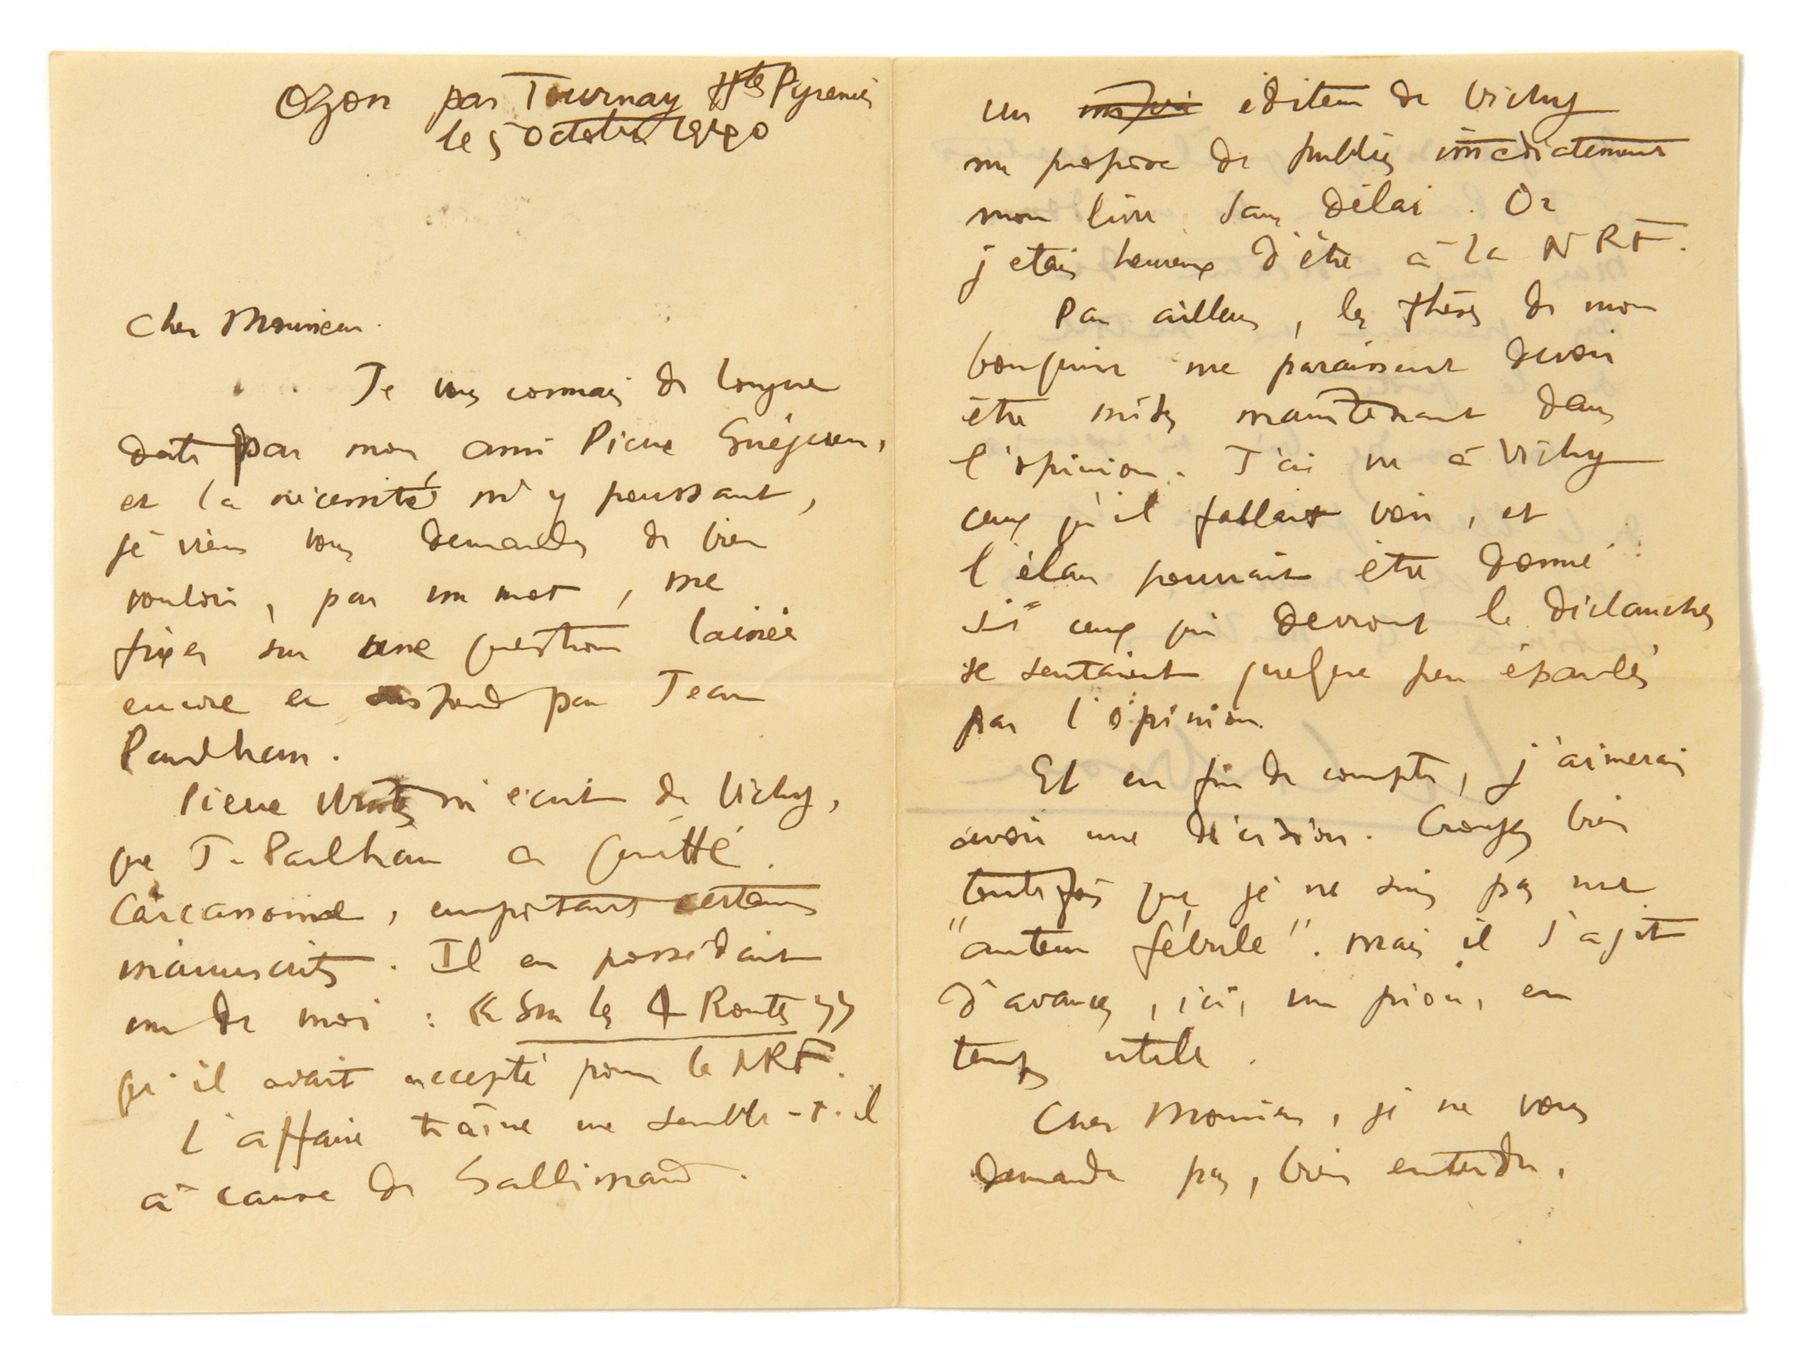 Ozon par Tournay Htes Pyrenées
le 5 Octobre 1940
Cher Monsieur.
Je vous connais de longue
date par mon ami Pierre Guéguen,
et la nécessité m'y poussant,
je viens vous demander de bien
vouloir, par un mot, me
fixer sur une question laissée
encore en suspend par Jean
Paulhan.
Pierre m'écrit de Vichy,
que J. Paulhan a quitté
Carcassonne, emportant certains
manuscrits. Il en possédait
un de moi : « Sur les 4 Routes »
qu'il avait accepté pour la NRF.
L'affaire traîne me semble-t-il
à cause de Gallimard.
Un éditeur de Vichy
me propose de publier immédiatement
mon livre sans délai. Or
j'etais heureux d'être à la NRF.
Par ailleurs, les thèses de mon
bouquin me paraissent devoir
être mises maintenant dans
l'opinion. J'ai vu à Vichy
ceux qu'il fallait voir, et
l'élan pourrait être donné
si ceux qui devront le déclancher
se sentaient quelque peu épaulés
par l'opinion.
Et en fin de compte, j'aimerais
avoir une décision. Croyez bien
toutefois que je ne suis pas une
"auteur fébrile". mais il s'agit
d'avancer, ici, un pion, en
temps utile.
Cher Monsieur, je ne vous
demande pas, bien entendu,